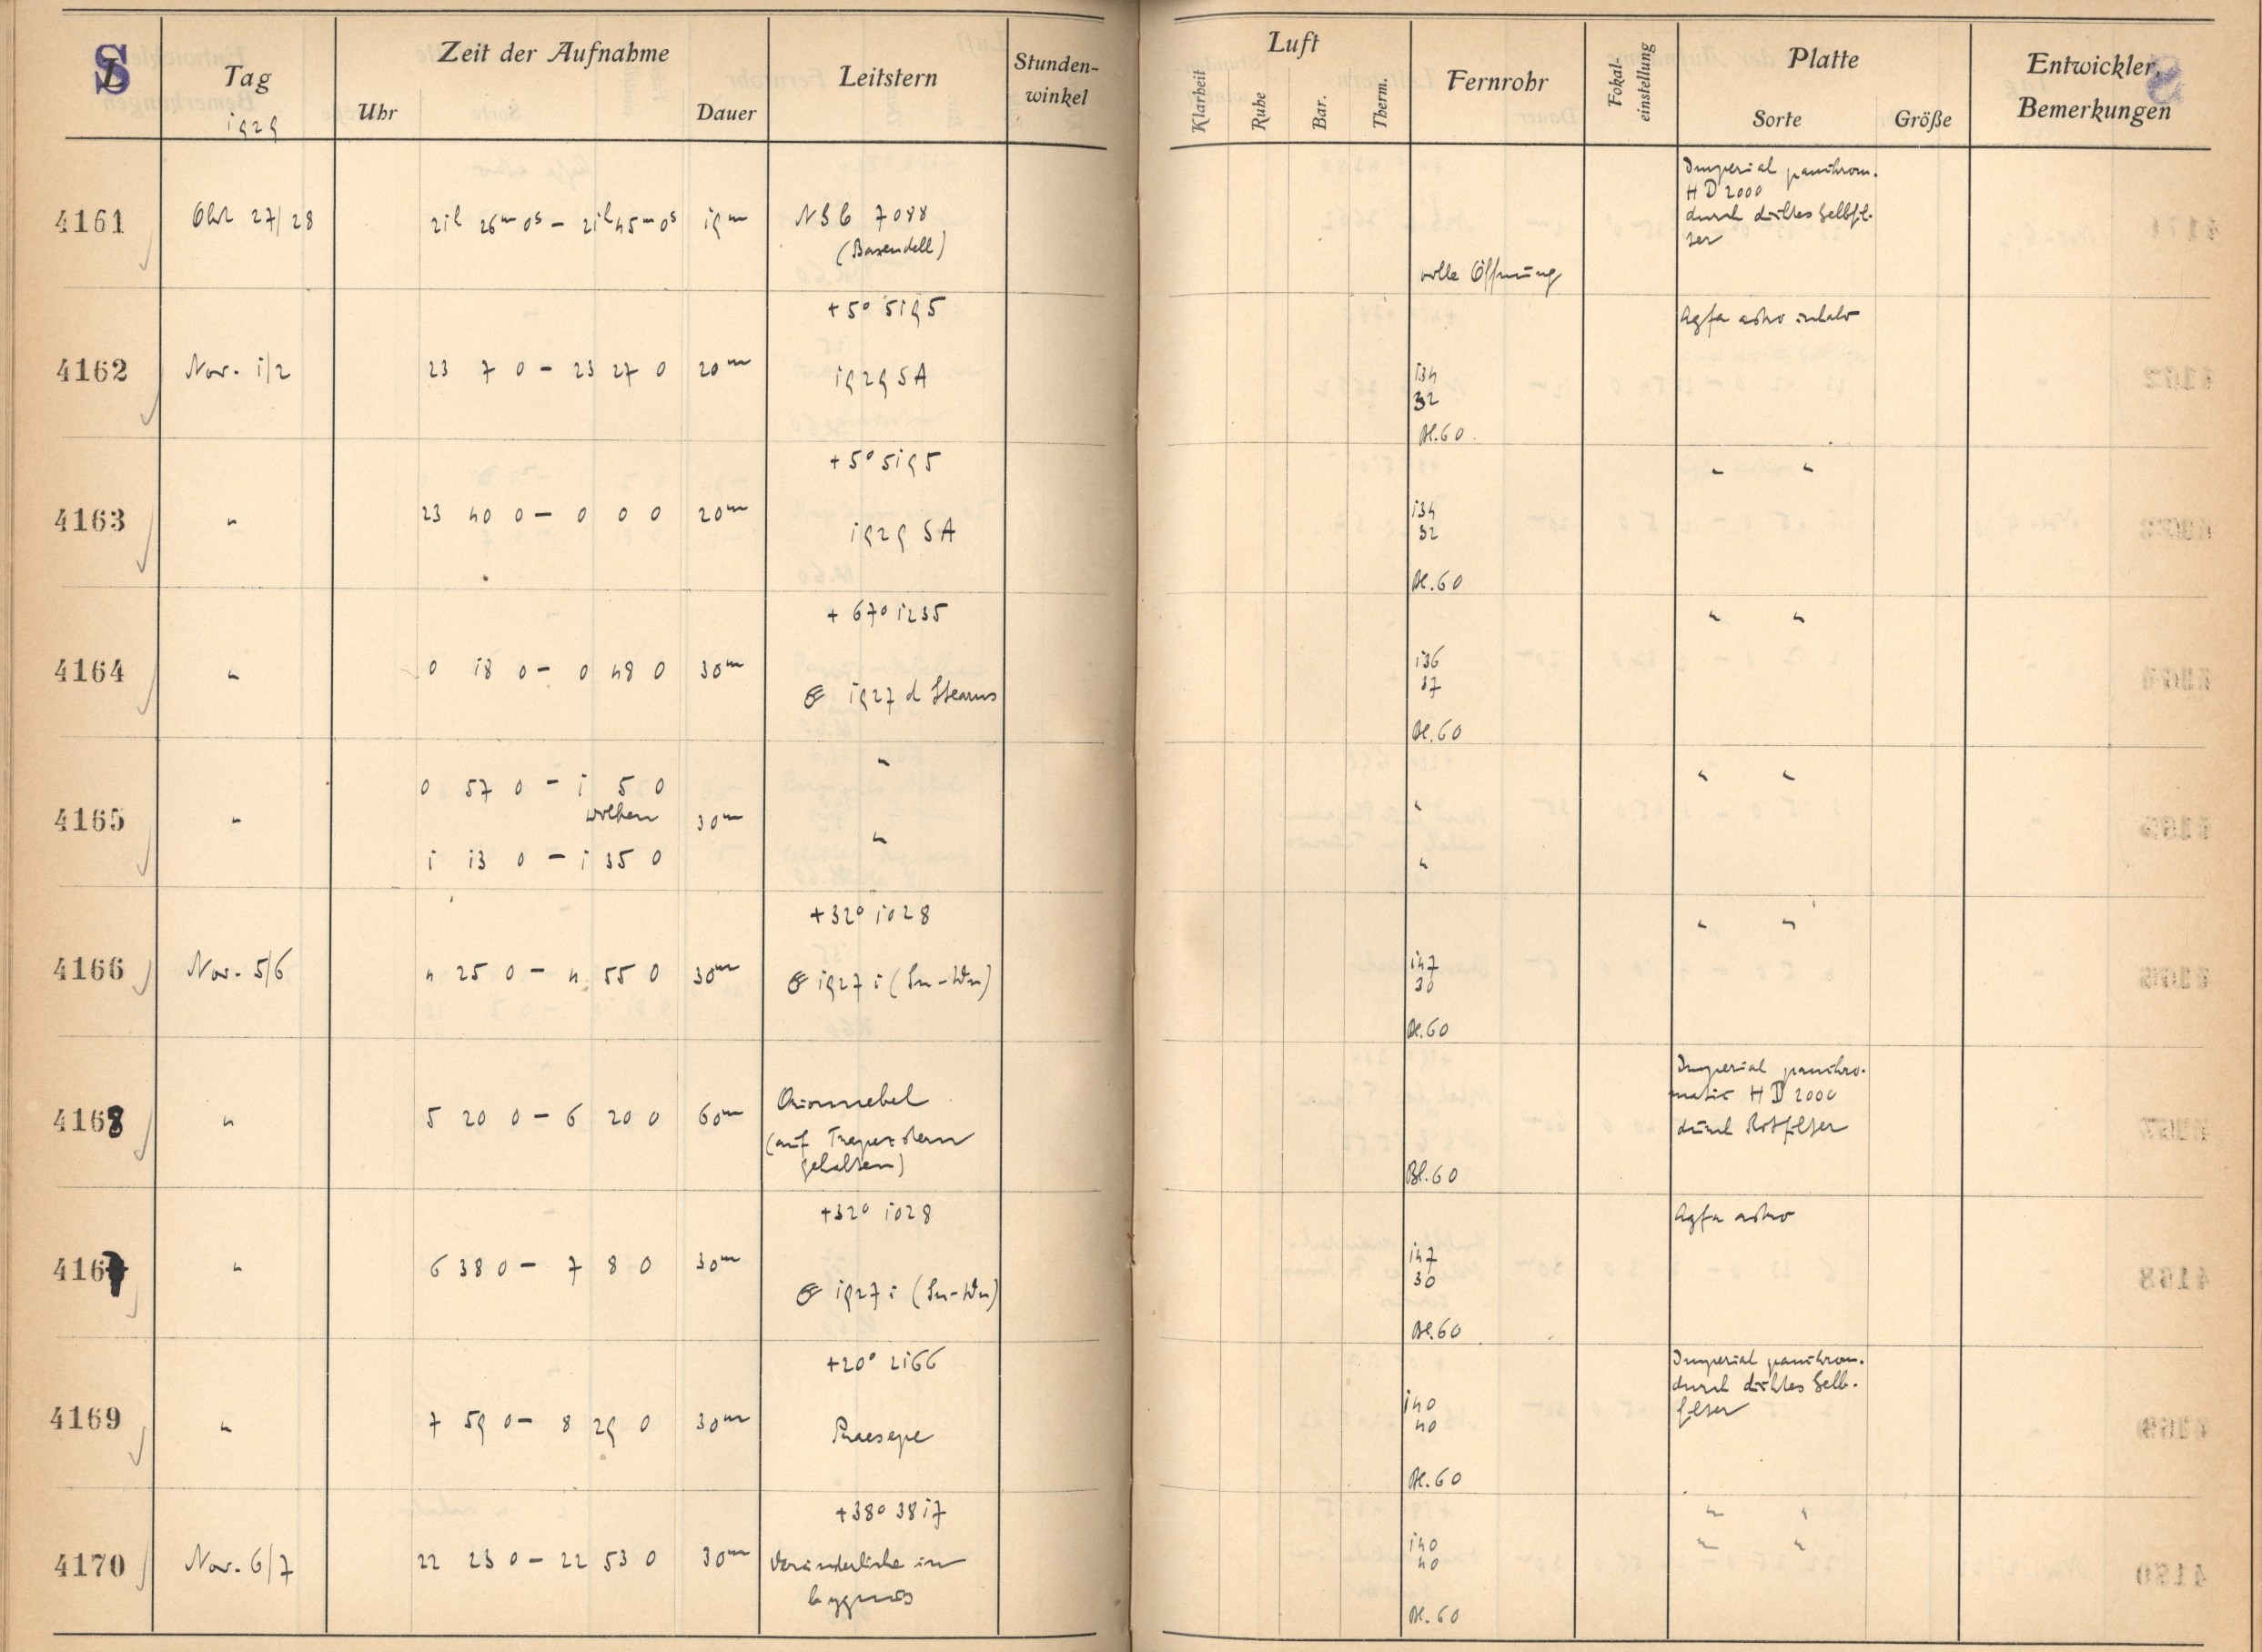 S
Tag
1929
Zeit der Aufnahme
Uhr
Dauer
Leitstern
Stunden-
winkel
Luft
Klarheit
Ruhe
Bar.
Therm.
Fernrohr
Fokal-
einstellung
Platte
Sorte
Größe
Entwickler,
Bemerkungen
4161 Okt 27/28 21h 26m 0s – 21h 45m 0s 19m
NGC 7088
(Baxendell)
volle Öffnung
Imperial panchrom.
HD 2000
durch dichtes Gelbfil-
ter
+5° 5195
4162 Nov. 1/2 23 7 0 – 23 27 0 20m
1929 SA
134
32
Bl. 60
Agfa astro
+5° 5195
4163 " 23 40 0 – 0 0 0 20m
1929 SA
134
32
Bl. 60
" "
+67° 1235
4164 " 0 18 0 – 0 48 0 30m
1927 d Stearns
136
37
Bl. 60
" "
4165 " 0 57 0 – 1 5 0
Wolken 30m
1 13 0 – 1 35 0
"
"
"
"
" "
+32° 1028
4166 Nov. 5/6 4 25 0 – 4 55 0 30m
1927 i (Sn-Wn)
147
30
Bl. 60
" "
4168 " 5 20 0 – 6 20 0 60m
Orionnebel
(auf Trapezstern
gehalten)
Bl. 60
Imperial panchro-
matic HD 2000
durch Rotfilter
+32° 1028
4167 " 6 38 0 – 7 8 0 30m
1927 i (Sn-Wn)
147
30
Bl. 60
Agfa astro
+20° 2166
4169 " 7 59 0 – 8 29 0 30m
Praesepe
140
40
Bl. 60
Imperial panchrom.
durch dichtes Gelb-
filter
+38° 3817
4170 Nov. 6/7 22 23 0 – 22 53 0 30m
Veränderliche im
Cygnus
140
40
Bl. 60
" "
" "